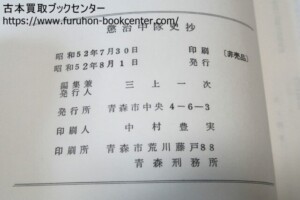 古本買取ブックセンター
https://www.furuhon-bookcenter.com/
愈治中隊史抄
昭和52年7月30日 印刷 〔非売品〕
昭和52年8月1日 発行
編集兼発行人 三上一次
発行所 青森市中央4-6-3
印刷人 中村豊実
印刷所 青森市荒川藤戸88
青森刑務所